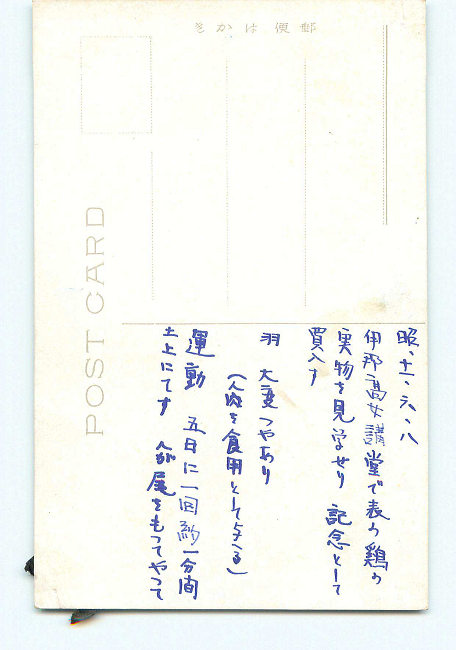 郵便はかき
POST CARD
昭、十一・六・八
伊那高女講堂で表の鶏の
実物を見学せり 記念として
買入す
羽 大変つやあり
(を食用として与える)
運動 五日に一回約一分間
土上にてす 人が尾をもつてやつて